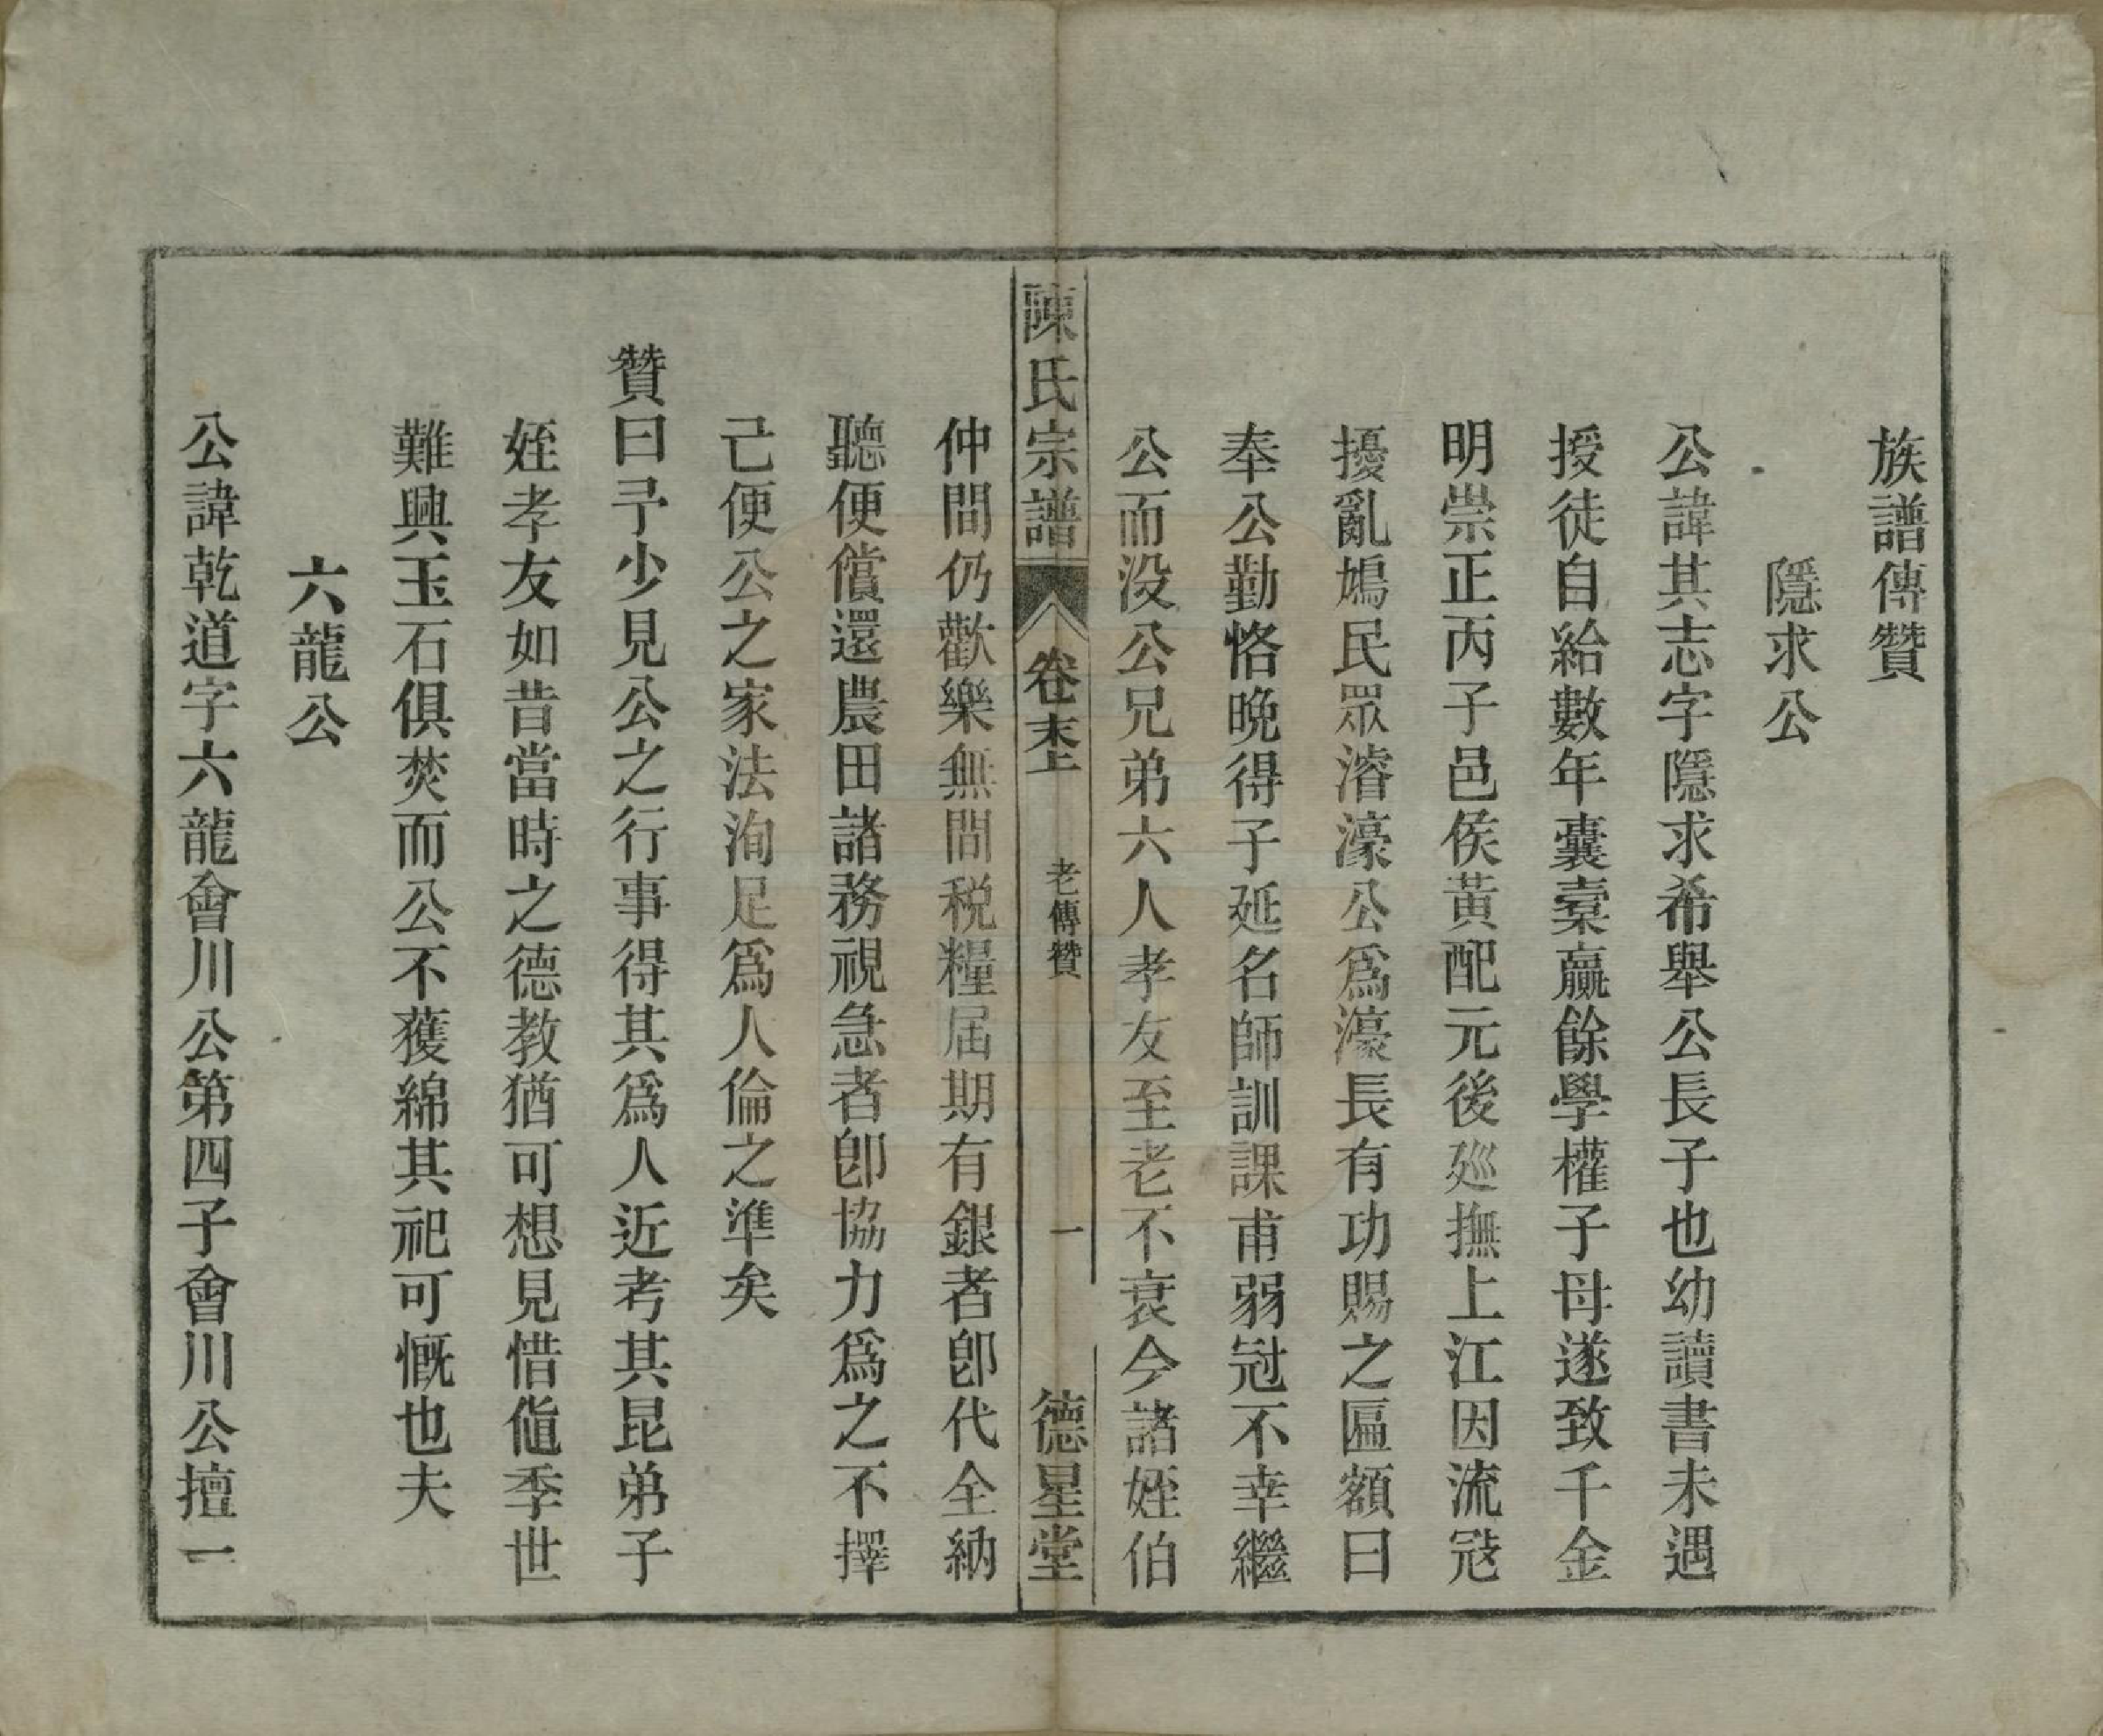 族譜傳贊
隱求公
公諱其志字隱求希舉公長子也幼讀書未遇
授徒自給數年囊槖贏餘學權子母遂致千金
明崇正丙子邑侯黃配元後廵撫上江因流冦
擾亂鳩民眾濬濠公爲濠長有功賜之匾額曰
奉公勤恪晚得子延名師訓課甫弱冠不幸繼
公而没公兄弟六人孝友至老不衰今諸姪伯
陳氏宗譜
卷末上
老傳贊
一
德星堂
仲間仍歡樂無間税糧届期有銀者卽代全納
聽便償還農田諸務視急者卽協力爲之不擇
己便公之家法洵足爲人倫之準矣
贊曰予少見公之行事得其爲人近考其昆弟子
姪孝友如昔當時之德教猶可想見惜值季世
難興玉石俱焚而公不獲綿其祀可慨也夫
六龍公
公諱乾道字六龍會川公第四子會川公擅一